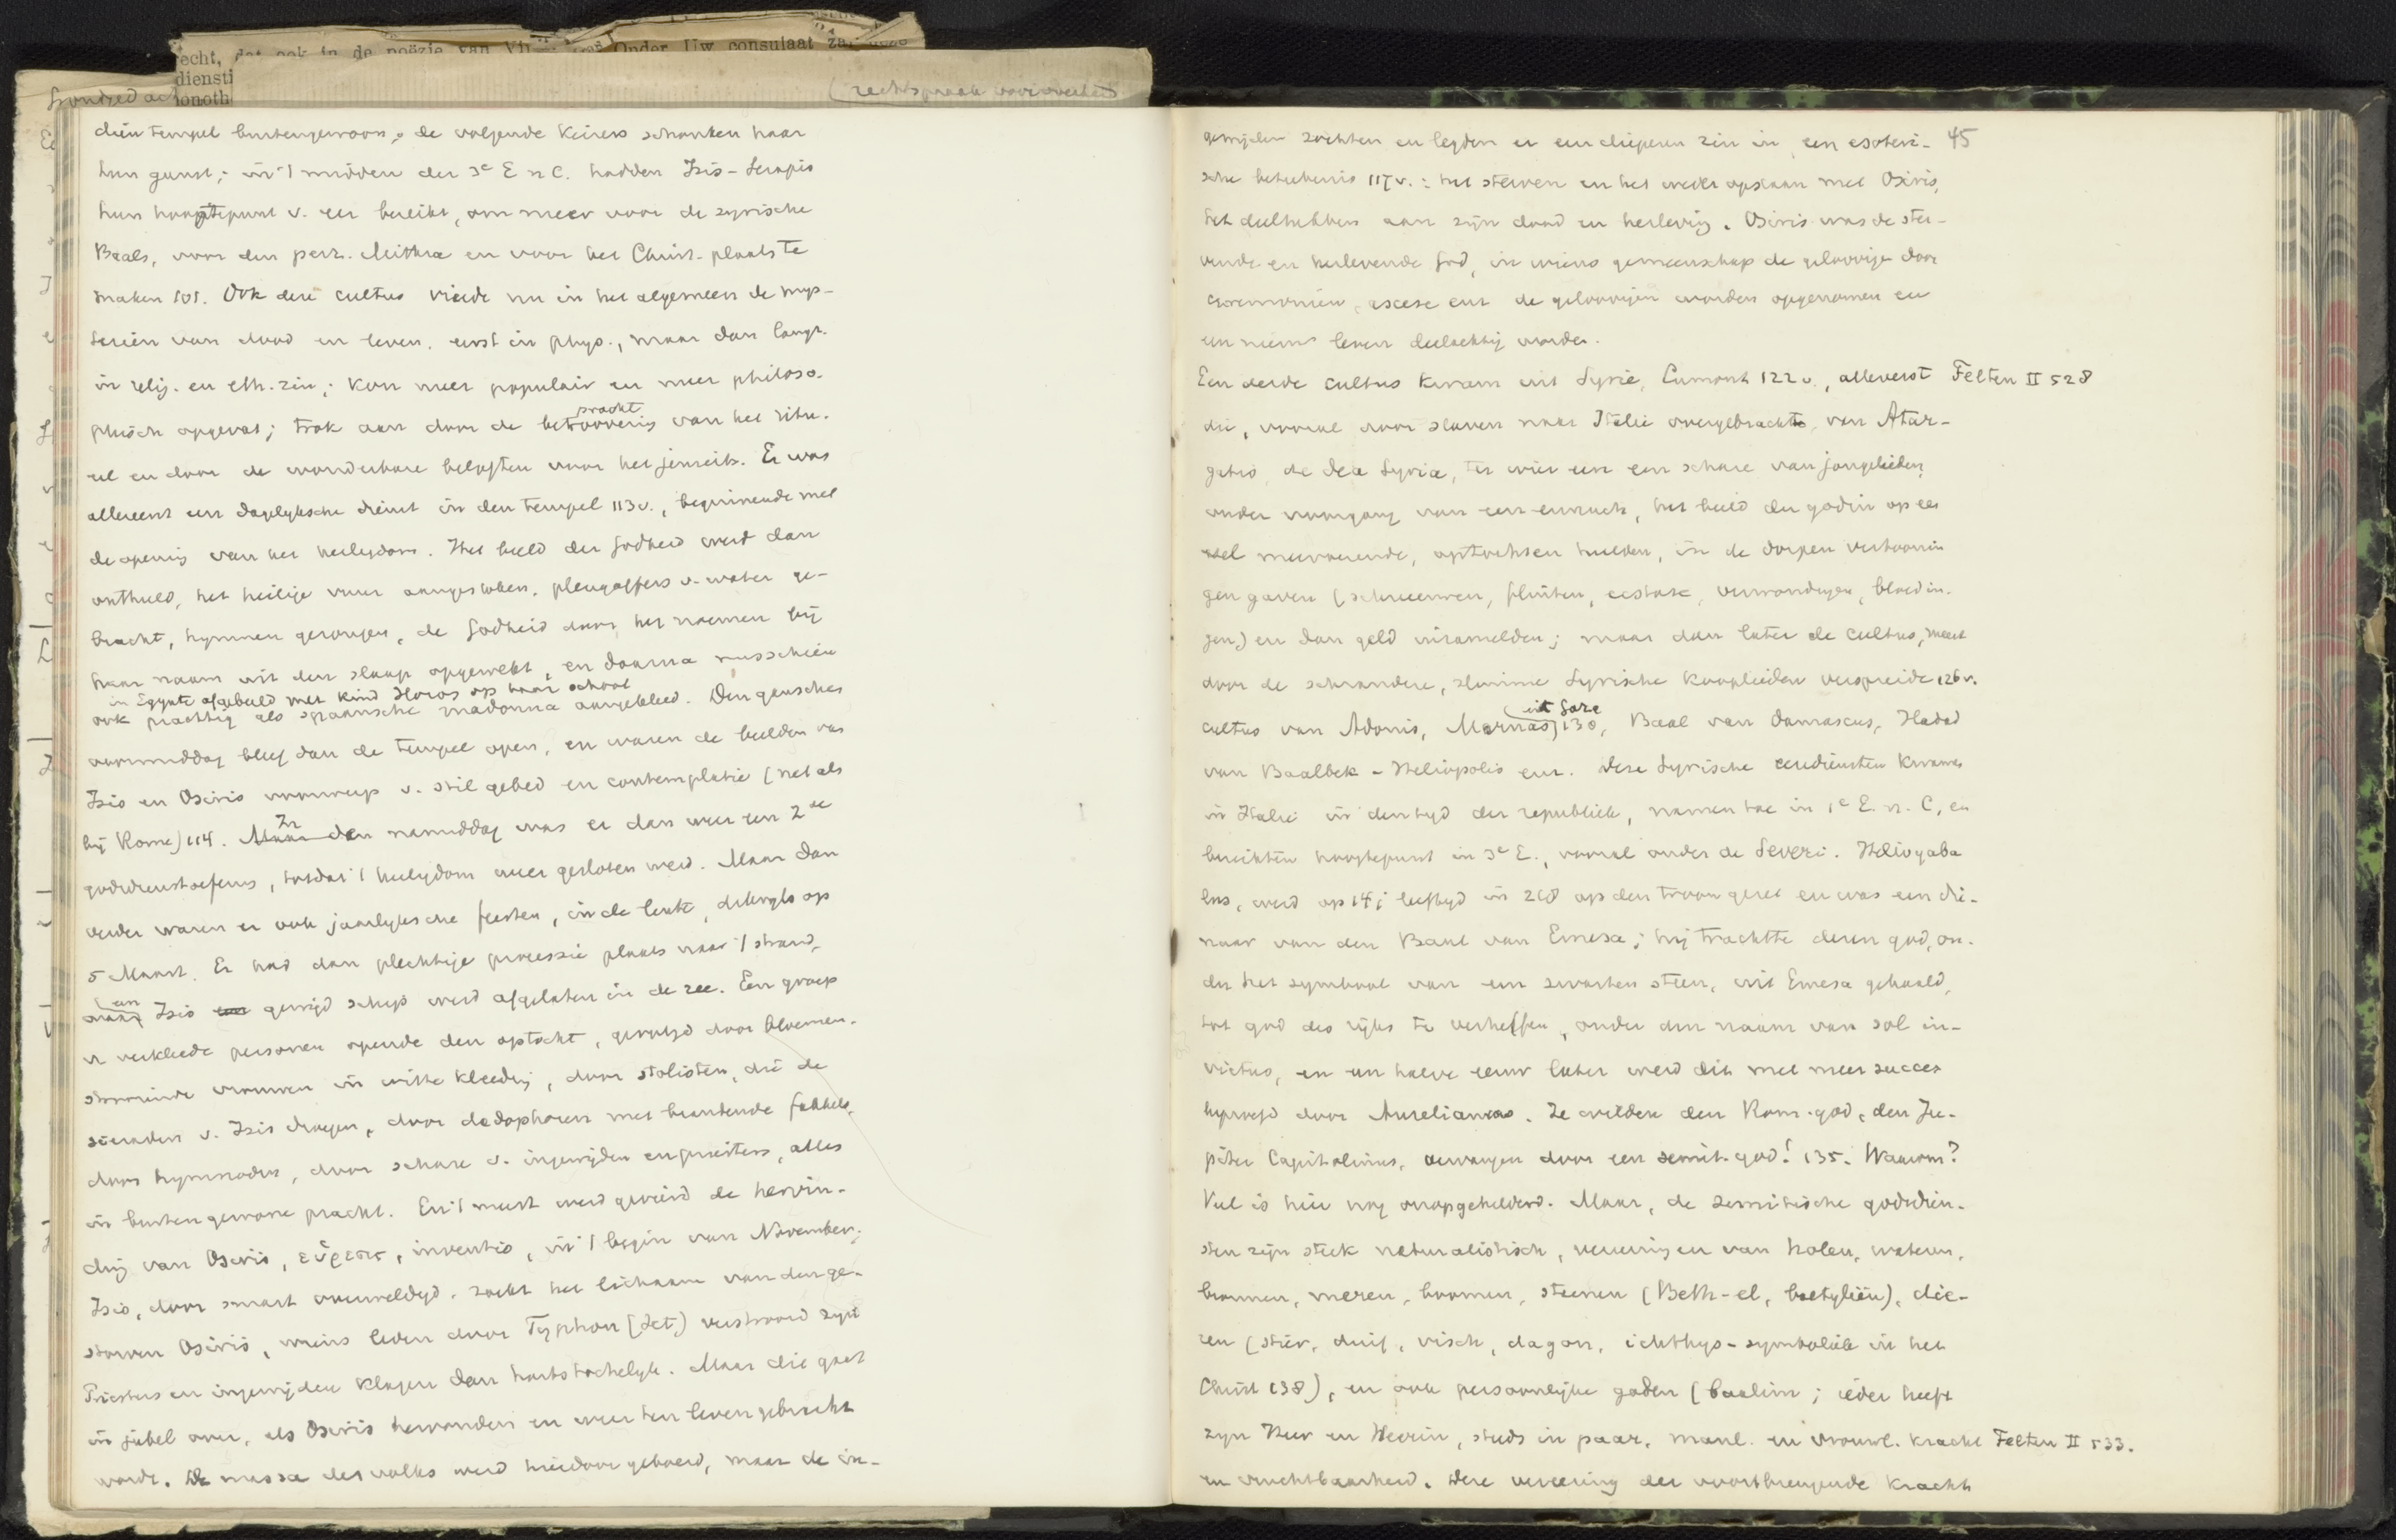 echt, dat ook in de poëzie van Onder Uw consulaat
diensti
onoth
(rechtspraak
dien tempel buitengewoon, de volgende keizers schonken haar
hun gunst; in 't midden der 3e E n C. hadden Isis-Serapis
hun hoogtepunt v. eer bereikt, om meer voor de syrische
Baals, voor den perz. Mithra en voor het Christ. plaats te
maken 101. Ook deze cultus vierde nu in het algemeen de mys-
teriën van dood en leven, eerst in phys., maar dan langz.
in relig. en eth. zin; kon meer populair en meer philoso-
phisch opgevat; trok aan door de betoovering van het ritu-
pracht
eel en door de wonderbare beloften voor het jenseits. Er was
allereerst een dagelyksche dienst in den tempel 113v., beginnende met
de opening van het heiligdom. Het beeld der Godheid werd dan
onthuld, het heilige vuur aangestoken, plengoffers v. water ge-
bracht, hymnen gezongen, de Godheid door het noemen bij
haar naam uit den slaap opgewekt, en daarna misschien
in Egypte afgebeeld met kind Horos op haar schoot
ook prachtig als spaansche madonna aangekleed. Den ganschen
voormiddag bleef dan de tempel open, en waren de beelden van
Isis en Osiris voorwerp v. stil gebed en contemplatie (net als
bij Rome) 114. In den namiddag was er dan weer een 2de
godsdienstoefening, totdat 't heiligdom weer gesloten werd. Maar dan
verder waren er ook jaarlyksche feesten, in de lente, dikwyls op
5 Maart. Er had dan plechtige processie plaats naar 't strand,
een
aan Isis gewijd schip werd afgelaten in de zee. Een groep
v verkleede personen opende den optocht, gevolgd door bloemen-
strooiende vrouwen in witte kleeding, door stolisten, die de
sieraden v. Isis dragen, door dadophoren met brandende fakkels,
door hymnoden, door schare v. ingewijden en priesters, alles
in buitengewone pracht. En 't meest werd gevierd de hervin-
ding van Osiris, εὕρεσις, inventio, in 't begin van November;
Isis, door smart overweldigd, zoekt het lichaam van den ge-
storven Osiris, wiens leven door Typhon (Set) verstoord zyn
Priesters en ingewijden klagen dan hartstochtelyk. Maar die gaat
in jubel over, als Osiris hervonden en weer ten leven gebracht
wordt. De massa des volks werd hierdoor geboeid, maar de in-
gewijden zochten en legden er een dieperen zin in, een esoteri- 45
sche beteekenis 117v.: het sterven en het weder opstaan met Osiris,
het deelhebben aan zijn dood en herleving. Osiris was de ster-
vende en herlevende God, in wiens gemeenschap de geloovige door
ceremoniën, ascese enz. de geloovigen worden opgenomen en
een nieuw leven deelachtig worden.
Een derde cultus kwam uit Syrië, Cumont 122v., allereerst Felten II 528
die, vooral door slaven naar Italië overgebracht, van Atar-
gatis, de dea Syria, ter wier eer een schare van jongelieden,
onder voorgang van een eunuch, het beeld der godin op een
ezel meevoerende, optochten hielden, in de dorpen vertoonin
gen gaven (schreeuwen, fluiten, ecstase, verwondingen, bloedin-
gen) en dan geld inzamelden; maar dan later de cultus, meest
door de schrandere, slimme Syrische kooplieden verspreide 126v.
uit Gaza
cultus van Adonis, Marnas 130, Baal van Damascus, Hadad
van Baalbek-Heliopolis enz. Deze Syrische eerediensten kwamen
in Italië in den tyd der republiek, namen toe in 1e E. n. C, en
bereikten hoogtepunt in 3e E., vooral onder de Severi. Heliogaba
lus, werd op 14j leeftyd in 218 op den troon gezet en was een die-
naar van den Baal van Emesa; hij trachtte dezen god, on-
der het symbool van een zwarten steen, uit Emesa gehaald,
tot god des ryks te verheffen, onder den naam van sol in-
victus, en een halve eeuw later werd dit met meer succes
beproefd door Aurelianus. Ze wilden den Rom. god, den Ju-
piter Capitolinus, vervangen door een semit. god! 135. Waarom?
Veel is hier nog onopgehelderd. Maar, de semitische godsdien-
sten zijn sterk naturalistisch, vereeringen van holen, wateren,
bronnen, meren, boomen, steenen (Beth-el, baetyliën), die-
ren (stier, duif, visch, dagon, ichthys-symboliek in het
Christ 138), en ook persoonlijke goden (baalim; ieder heeft
zyn Heer en Heerin, steeds in paar, manl. en vrouwl. kracht Felten II 533.
en vruchtbaarheid. Deze vereering der voortbrengende kracht